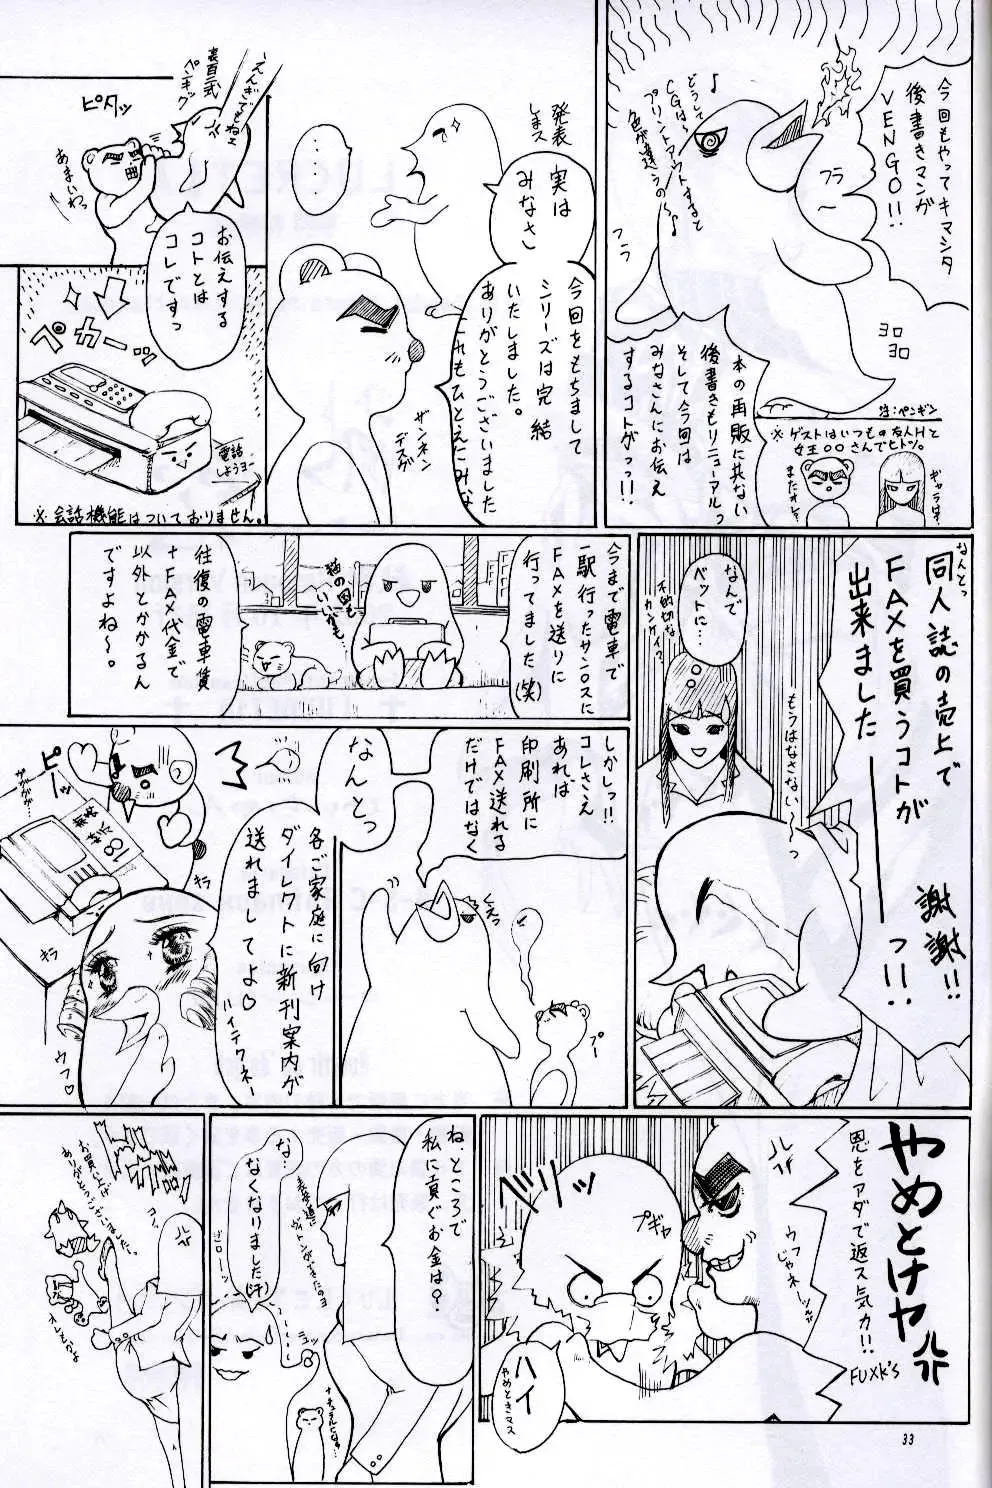 今回もやってキマシタ
後書きマンガ
VENGO!!
♪どうして
CGは〜
プリントアウトすると
色が違うの〜♪
フラ〜
フラ
ヨロ
ヨロ
注:ペンギン
本の再販に共ない
後書きもリニューアルっ
そして今回は
みなさんにお伝え
するコトがっっ!!
※ゲストはいつもの友人Hと
女王○○さんでヒトツ。
ギャラは?
発表
しまス
実は
みなさん
・・・
今回をもちまして
シリーズは完結
いたしました。
ありがとうございました
これもひとえにみな
ザンネン
デスゲ
えんぎでもねェ
裏百式
ペンギック
ピタッ
あまいわっ
お伝えする
コトとは
コレですっ
ペカーッ
電話
しようヨー
※会話機能はついておりません。
なんとっ
同人誌の売上で
FAXを買うコトが
出来ました――っ!!
謝謝!!
もうはなさない〜っ
なんで
ベットに…
不適切な
カンケイ?
今まで電車で
一駅行ったサン○スに
FAXを送りに
行ってました(笑)
猫の図も
いいかも…
往復の電車賃
+FAX代金で
以外とかかるん
ですよね〜。
しかしっ!!
コレさえ
あれば
印刷所に
FAX送れる
だけではなく
くるっ
プー
なんとっ
各ご家庭に向け
ダイレクトに新刊案内が
送れましてよ♡
ハイテクネー
ピーッ
18禁
キラ
キラ
ウフ♡
やめとけヤ
恩をアダで返ス気カ!!
FUXK'S
ウフじゃねー
ドリッ
プギャ
ハイ
やめときマス
ね、ところで
私に貢ぐお金は?
な…
なくなりました(汗)
ゴローン
ニュッ
お買い上げ
ありがとうございました。
コイツ
オレもかよ
33